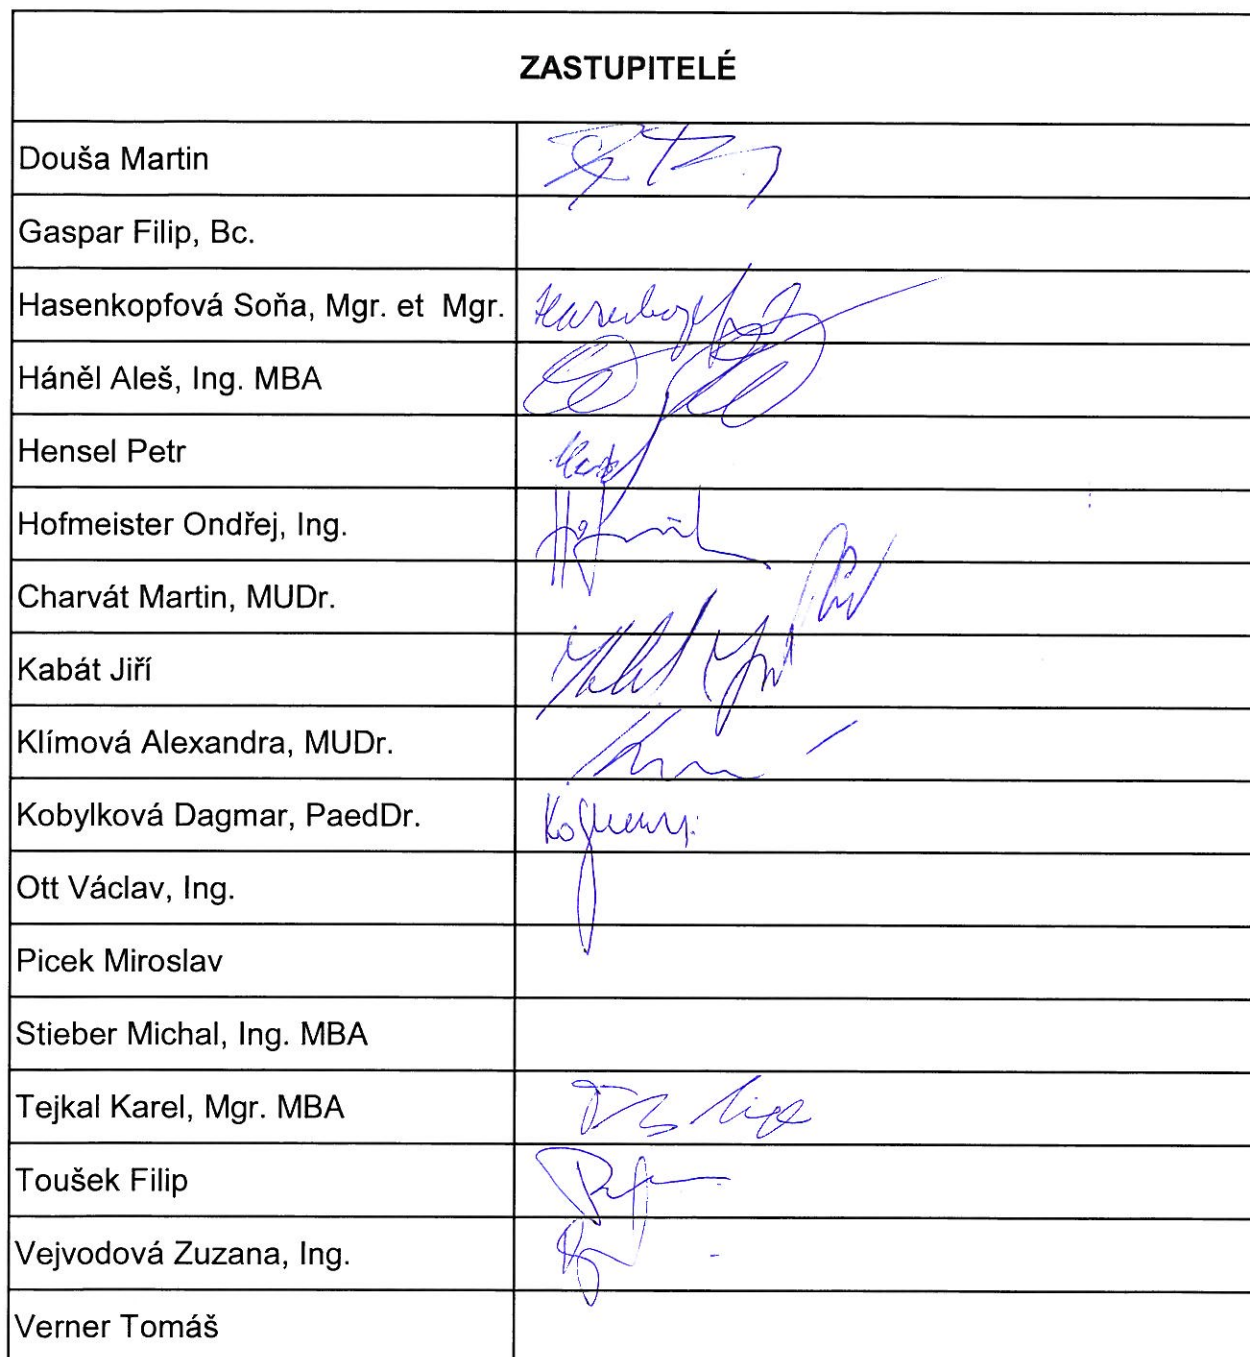 ZASTUPITELÉ
Douša Martin
Gaspar Filip, Bc.
Hasenkopfová Soňa, Mgr. et Mgr.
Háněl Aleš, Ing. MBA
Hensel Petr
Hofmeister Ondřej, Ing.
Charvát Martin, MUDr.
Kabát Jiří
Klímová Alexandra, MUDr.
Kobylková Dagmar, PaedDr.
Ott Václav, Ing.
Picek Miroslav
Stieber Michal, Ing. MBA
Tejkal Karel, Mgr. MBA
Toušek Filip
Vejvodová Zuzana, Ing.
Verner Tomáš